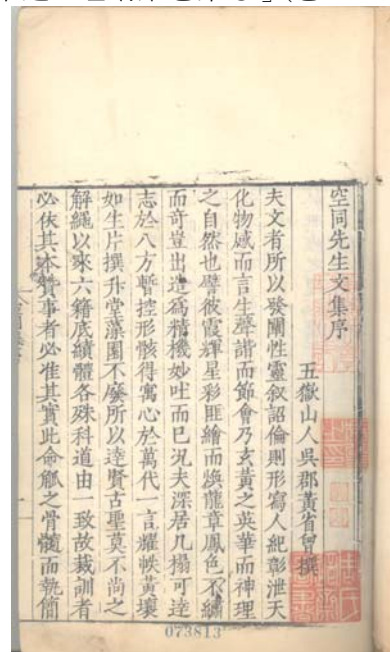 空同先生文集序
五嶽山人吳郡黃省曾撰
夫文者所以發闡性靈叙詔倫則形寫人紀彰泄天
化物感而言生聲諧而節會乃玄黃之英華而神理
之自然也譬彼霞輝星彩匪繪而煥龍章鳳色不繡
而奇豈出造為精機妙吐而已況夫深居几榻可達
志於八方暫控形骸得寓心於萬代一言耀帙黃壤
如生片撰升堂藻園不廢所以達賢古聖莫不尚之
解繩以來六籍底績體各殊科道由一致故裁訓者
必依其本贊事者必准其實此命觚之骨髓而執簡
073813